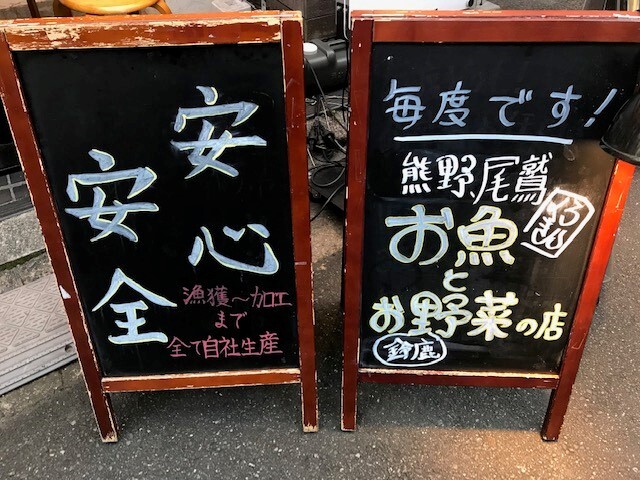 安心
安全
漁獲～加工
まで
全て自社生産
毎度です!
熊野、尾鷲
お魚
と
お野菜の店
鈴鹿